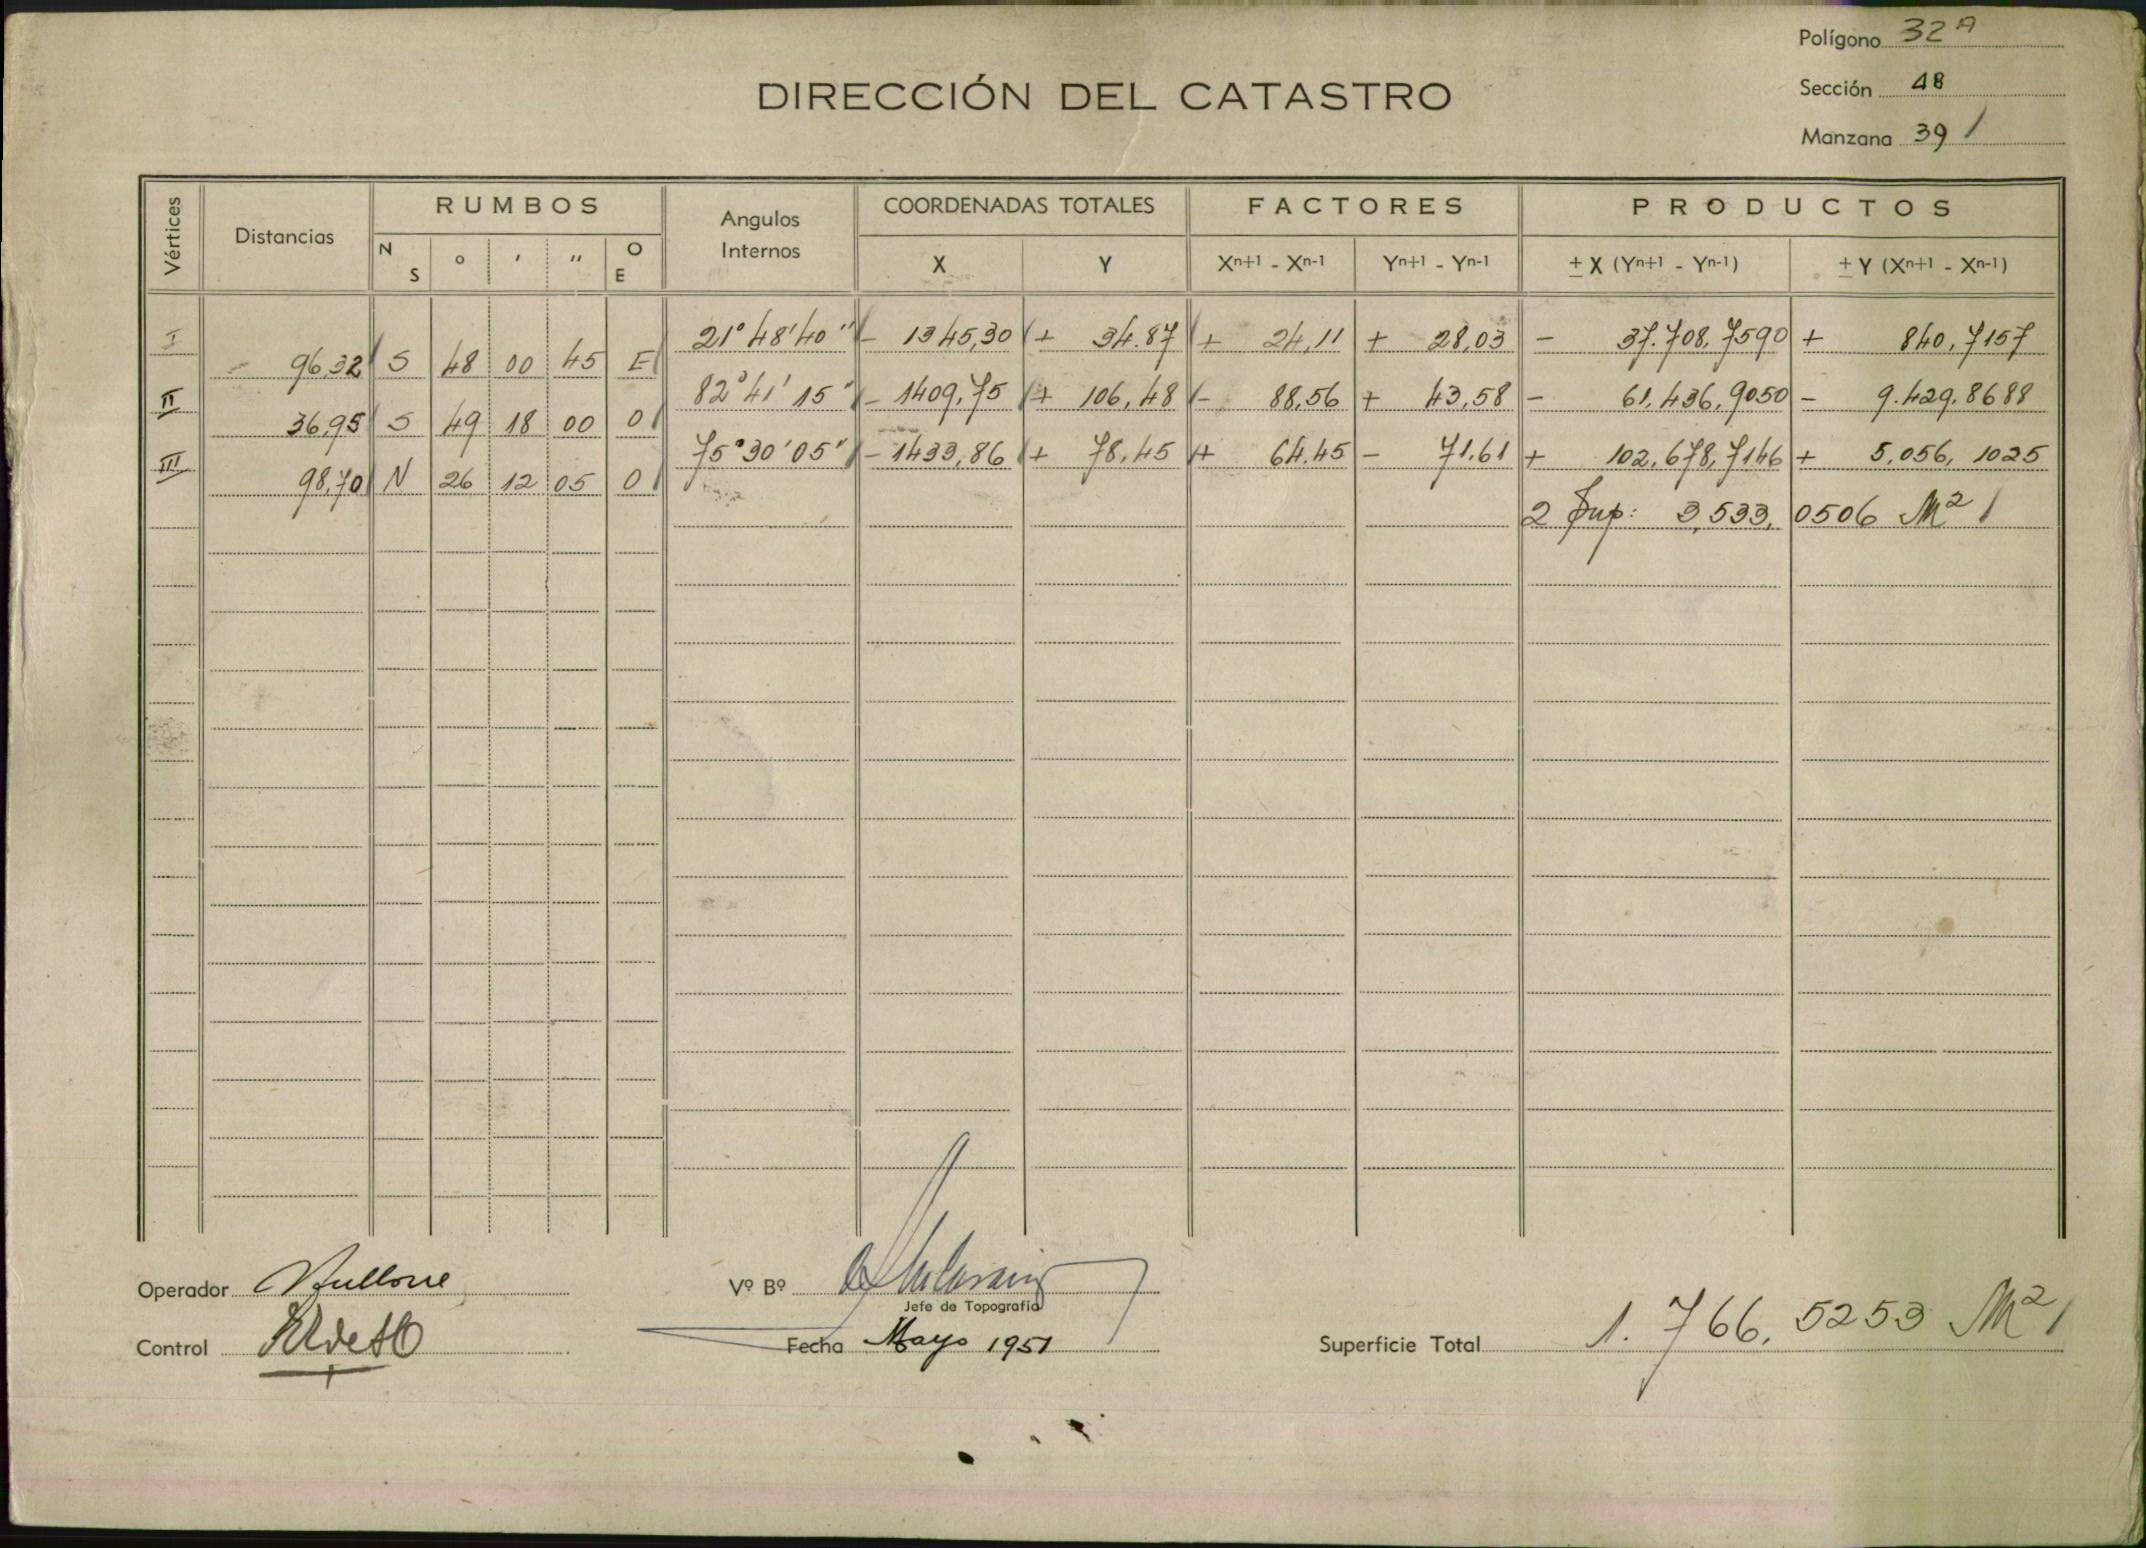 Polígono 32 A
DIRECCIÓN DEL CATASTRO
Sección 48
Manzana 39 /
Vértices Distancias RUMBOS Angulos Internos COORDENADAS TOTALES FACTORES PRODUCTOS
N S ° ' " O E X Y Xn+1 - Xn-1 Yn+1 - Yn-1 ± X (Yn+1 - Yn-1) ± Y (Xn+1 - Xn-1)
I 21° 48' 40" - 1345,30 + 34.87 + 24,11 + 28,03 - 37.708,7590 + 840,7157
96,32 S 48 00 45 E
II 82° 41' 15" - 1409,75 + 106,48 - 88,56 + 43,58 - 61.436,9050 - 9.429.8688
36,95 S 49 18 00 O
III 75° 30' 05" - 1433,86 + 78,45 + 64.45 - 71.61 + 102.678,7146 + 5.056,1025
98,70 N 26 12 05 O
2 Sup: 3,533,0506 M2 /
Operador
Vº Bº
Jefe de Topografía
Control
Fecha Mayo 1951
Superficie Total 1.766,5253 M2 /